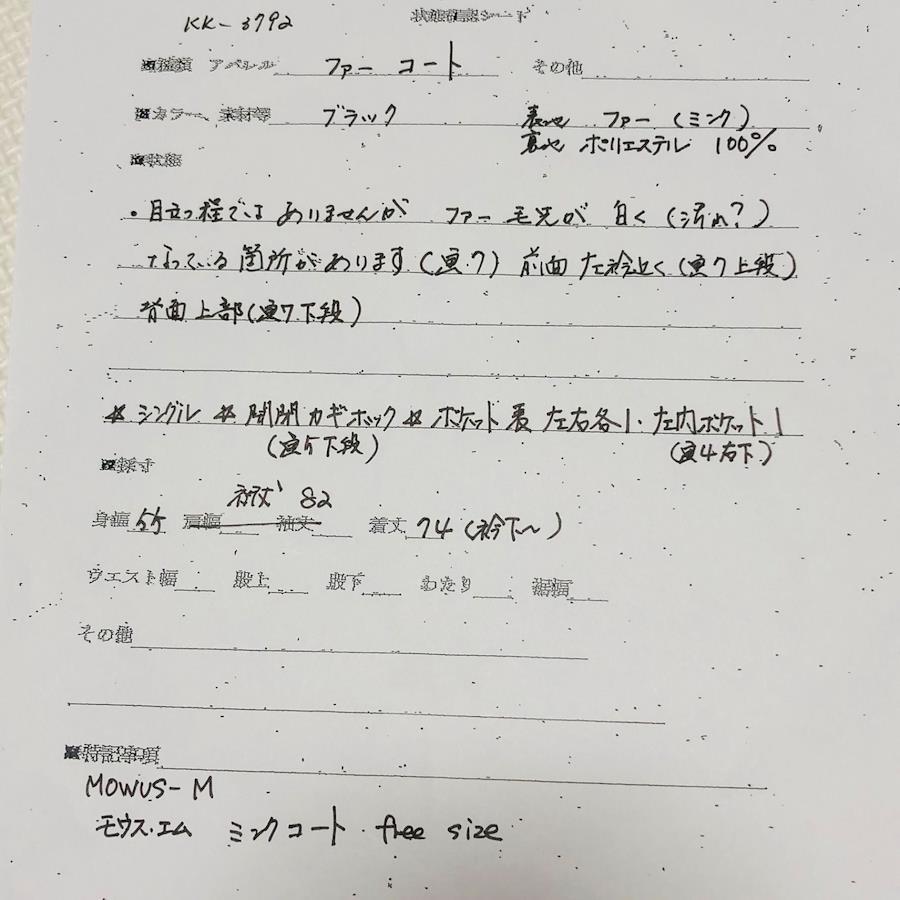 KK-3792
状態確認シート
■種類 アパレル ファー コート その他
■カラー、素材等 ブラック 表地 ファー (ミンク)
裏地 ポリエステル 100%
■状態
・目立つ程ではありませんが ファー毛先が 白く(汚れ?)
なっている箇所があります(画7) 前面 左衿近く(画7上段)
背面上部(画7下段)
* シングル * 開閉 カギホック * ポケット 表 左右各1・左内ポケット1
(画5下段) (画4右下)
■採寸
裄丈 82
身幅 55 肩幅 袖丈 着丈 74 (衿下~)
ウエスト幅 股上 股下 わたり 裾幅
その他
■特記事項
MOWUS-M
モウス・エム ミンクコート free size